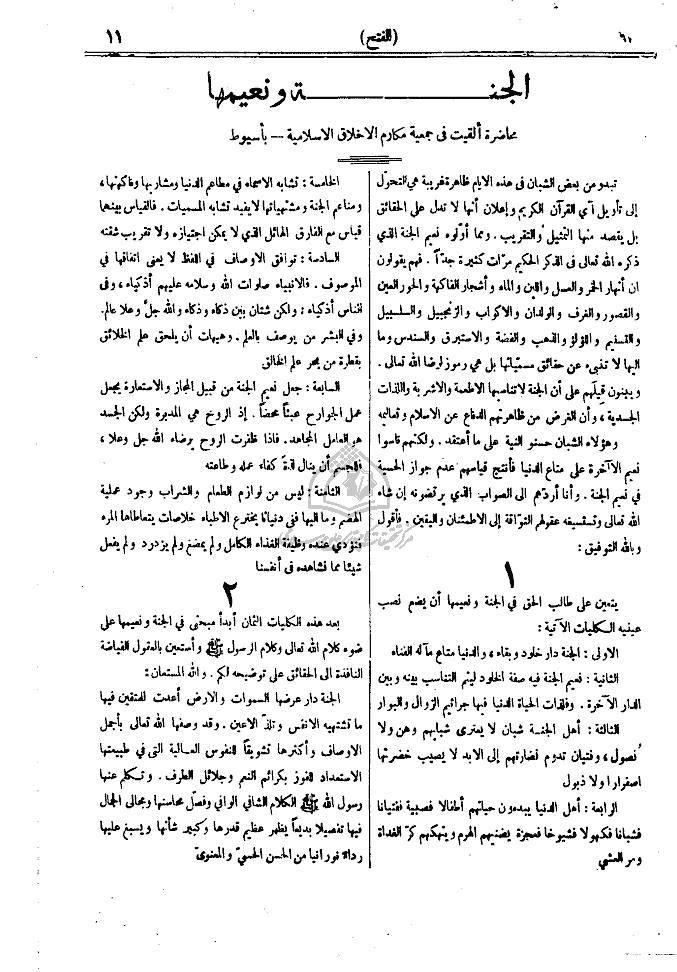 ٦١
(الفتح)
١١
الجنة ونعيمها
محاضرة ألقيت فى جمعية مكارم الاخلاق الاسلامية — بأسيوط
تبدو من بعض الشبان فى هذه الايام ظاهرة غريبة هي التحول
إلى تأويل آي القرآن الكريم وإعلان أنها لا تدل على الحقائق
بل يقصد منها التمثيل والتقريب . ومما أولوه نعيم الجنة الذي
ذكره الله تعالى فى الذكر الحكيم مرّات كثيرة جدّاً . فهم يقولون
ان أنهار الخمر والعسل واللبن والماء وأشجار الفاكهة والحور العين
والقصور والغرف والولدان والاكواب والزنجبيل والسلسبيل
والتسنيم واللؤلؤ والذهب والفضة والاستبرق والسندس وما
اليها لا تنبىء عن حقائق مسمّياتها بل هي رموز لرضا الله تعالى .
ويبنون قيلَهم على أن الجنة لا تناسبها الاطعمة والاشربة واللذات
الجسدية ، وأن الغرض من ظاهرتهم الدفاع عن الاسلام وتعاليمه
وهؤلاء الشبان حسنو النية على ما أعتقد . ولكنهم قاسوا
نعيم الآخرة على متاع الدنيا فأنتج قياسهم عدم جواز الحسية
فى نعيم الجنة . وأنا أردّهم الى الصواب الذي يرتضونه إن شاء
الله تعالى وتستسيغه عقولهم التوّاقة إلى الاطمئنان واليقين . فأقول
وبالله التوفيق :
١
يتعين على طالب الحق فى الجنة ونعيمها أن يضع نصب
عينيه الكليات الآتية :
الاولى : الجنة دار خلود وبقاء ، والدنيا متاع مآله الفناء
الثانية : نعيم الجنة فيه صفة الخلود ليتم التناسب بينه وبين
الدار الآخرة . ولذات الحياة الدنيا فيها جراثيم الزوال والبوار
الثالثة : أهل الجنة شبان لا يعترى شبابهم وهن ولا
نُصول ، وفتيان تدوم نضارتهم إلى الابد لا يصيب خضرتها
اصفرار ولا ذبول
الرابعة : أهل الدنيا يبدءون حياتهم أطفالا فصبية ففتيانا
فشبانا فكهولا فشيوخا فعجزة يضنيهم الهرم وينهكهم كرّ الغداة
ومر العشي
الخامسة : تشابه الاسماء في مطاعم الدنيا ومشاربها وفاكهتها ،
ومناعم الجنة ومشتهياتها لا يفيد تشابه المسميات . فالقياس بينهما
قياس مع الفارق الهائل الذي لا يمكن اجتيازه ولا تقريب شقته
السادسة : توافق الاوصاف في اللفظ لا يعنى اتفاقها في
الموصوف . فالانبياء صلوات الله وسلامه عليهم أذكياء ، وفى
الناس أذكياء : ولكن شتان بين ذكاء وذكاء والله جلّ وعلا عالم
وفي البشر من يوصف بالعلم . وهيهات أن يلحق علم الخلائق
بقطرة من بحر علم الخالق
السابعة : جعل نعيم الجنة من قبيل المجاز والاستعارة يجعل
عمل الجوارح عبثاً محضاً . إذ الروح هي المدبرة ولكن الجسد
هو العامل المجاهد . فاذا ظفرت الروح برضاء الله جل وعلا ،
فللجسم أن ينال لذة كفاء عمله وطاعته
الثامنة : ليس من لوازم الطعام والشراب وجود عملية
الهضم وما اليها فنى دنيانا يخترع الاطباء خلاصات يتعاطاها المره
فتؤدي عنده وظيفة الغذاء الكامل ولم يمضغ ولم يزدرد ولم يفعل
شيئا مما نشاهده فى أنفسنا
٢
بعد هذه الكليات الثمان أبدأ مبحثى في الجنة ونعيمها على
ضوء كلام الله تعالى وكلام الرسول ﷺ وأستعين بالعقول الفياضة
النافذة الى الحقائق على توضيحه لكم . والله المستعان :
الجنة دار عرضها السموات والارض أعدت للمتقين فيها
ما تشتهيه الانفس وتلذّ الاعين . وقد وصفها الله تعالى بأجمل
الاوصاف وأكثرها تشويقاً للنفوس العالية التى في طبيعتها
الاستعداد للفوز بكرائم النعم وجلائل الطرف . وتكلم عنها
رسول الله ﷺ الكلام الشافي الوافي وفصّل محاسنها ومجالى الجمال
فيها تفصيلا بديعاً يظهر عظيم قدرها وكبير شأنها ويسبغ عليها
رداءً نورانيا من الحسن الحسيّ والمعنويّ